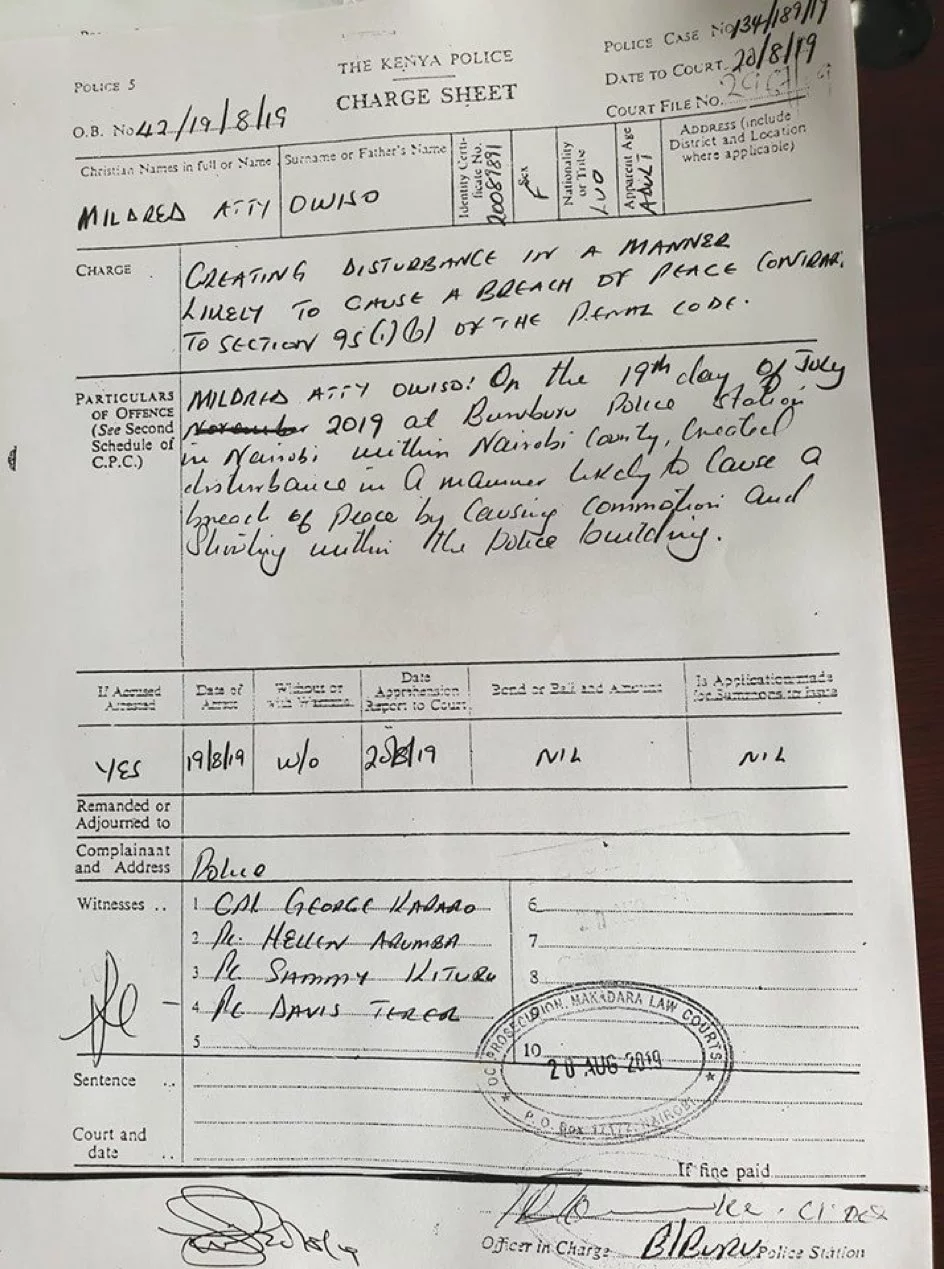 POLICE 5
THE KENYA POLICE
CHARGE SHEET
POLICE CASE No 134/189/19
DATE TO COURT. 20/8/19
COURT FILE NO.
O.B. No 42/19/8/19
Christian Names in full or Name
Surname or Father's Name
Identity Certi-
ficate No.
20089891
Sex
F
Nationality
or Tribe
LUO
Apparent Age
ADULT
ADDRESS (include
District and Location
where applicable)
MILDRED ATTY OWISO
CHARGE
CREATING DISTURBANCE IN A MANNER
LIKELY TO CAUSE A BREACH OF PEACE CONTRAR
TO SECTION 95(1)(b) OF THE PENAL CODE.
PARTICULARS
OF OFFENCE
(See Second
Schedule of
C.P.C.)
MILDRED ATTY OWISO: On the 19th day of July
November 2019 at Buruburu Police Station
in Nairobi within Nairobi County, Created
disturbance in a manner likely to cause a
breach of peace by causing commotion and
Shouting within the police building.
If Accused
Arrested
Date of
Arrest
Without or
with Warrant
Date
Apprehension
Report to Court
Bond or Bail and Amount
Is Application made
for Summons to issue
YES
19/8/19
W/O
20/8/19
NIL
NIL
Remanded or
Adjourned to
Complainant
and Address
Police
Witnesses ..
1 CPL GEORGE KADARO
2 PC HELLEN ARUMBA
3 PC SAMMY KITURU
4 PC DAVIS TERER
5
6
7
8
9
10
OC PROSECUTION, MAKADARA LAW COURTS
20 AUG 2019
P.O. Box NAIROBI
Sentence ..
Court and
date ..
If fine paid
Officer in Charge B/BURU Police Station